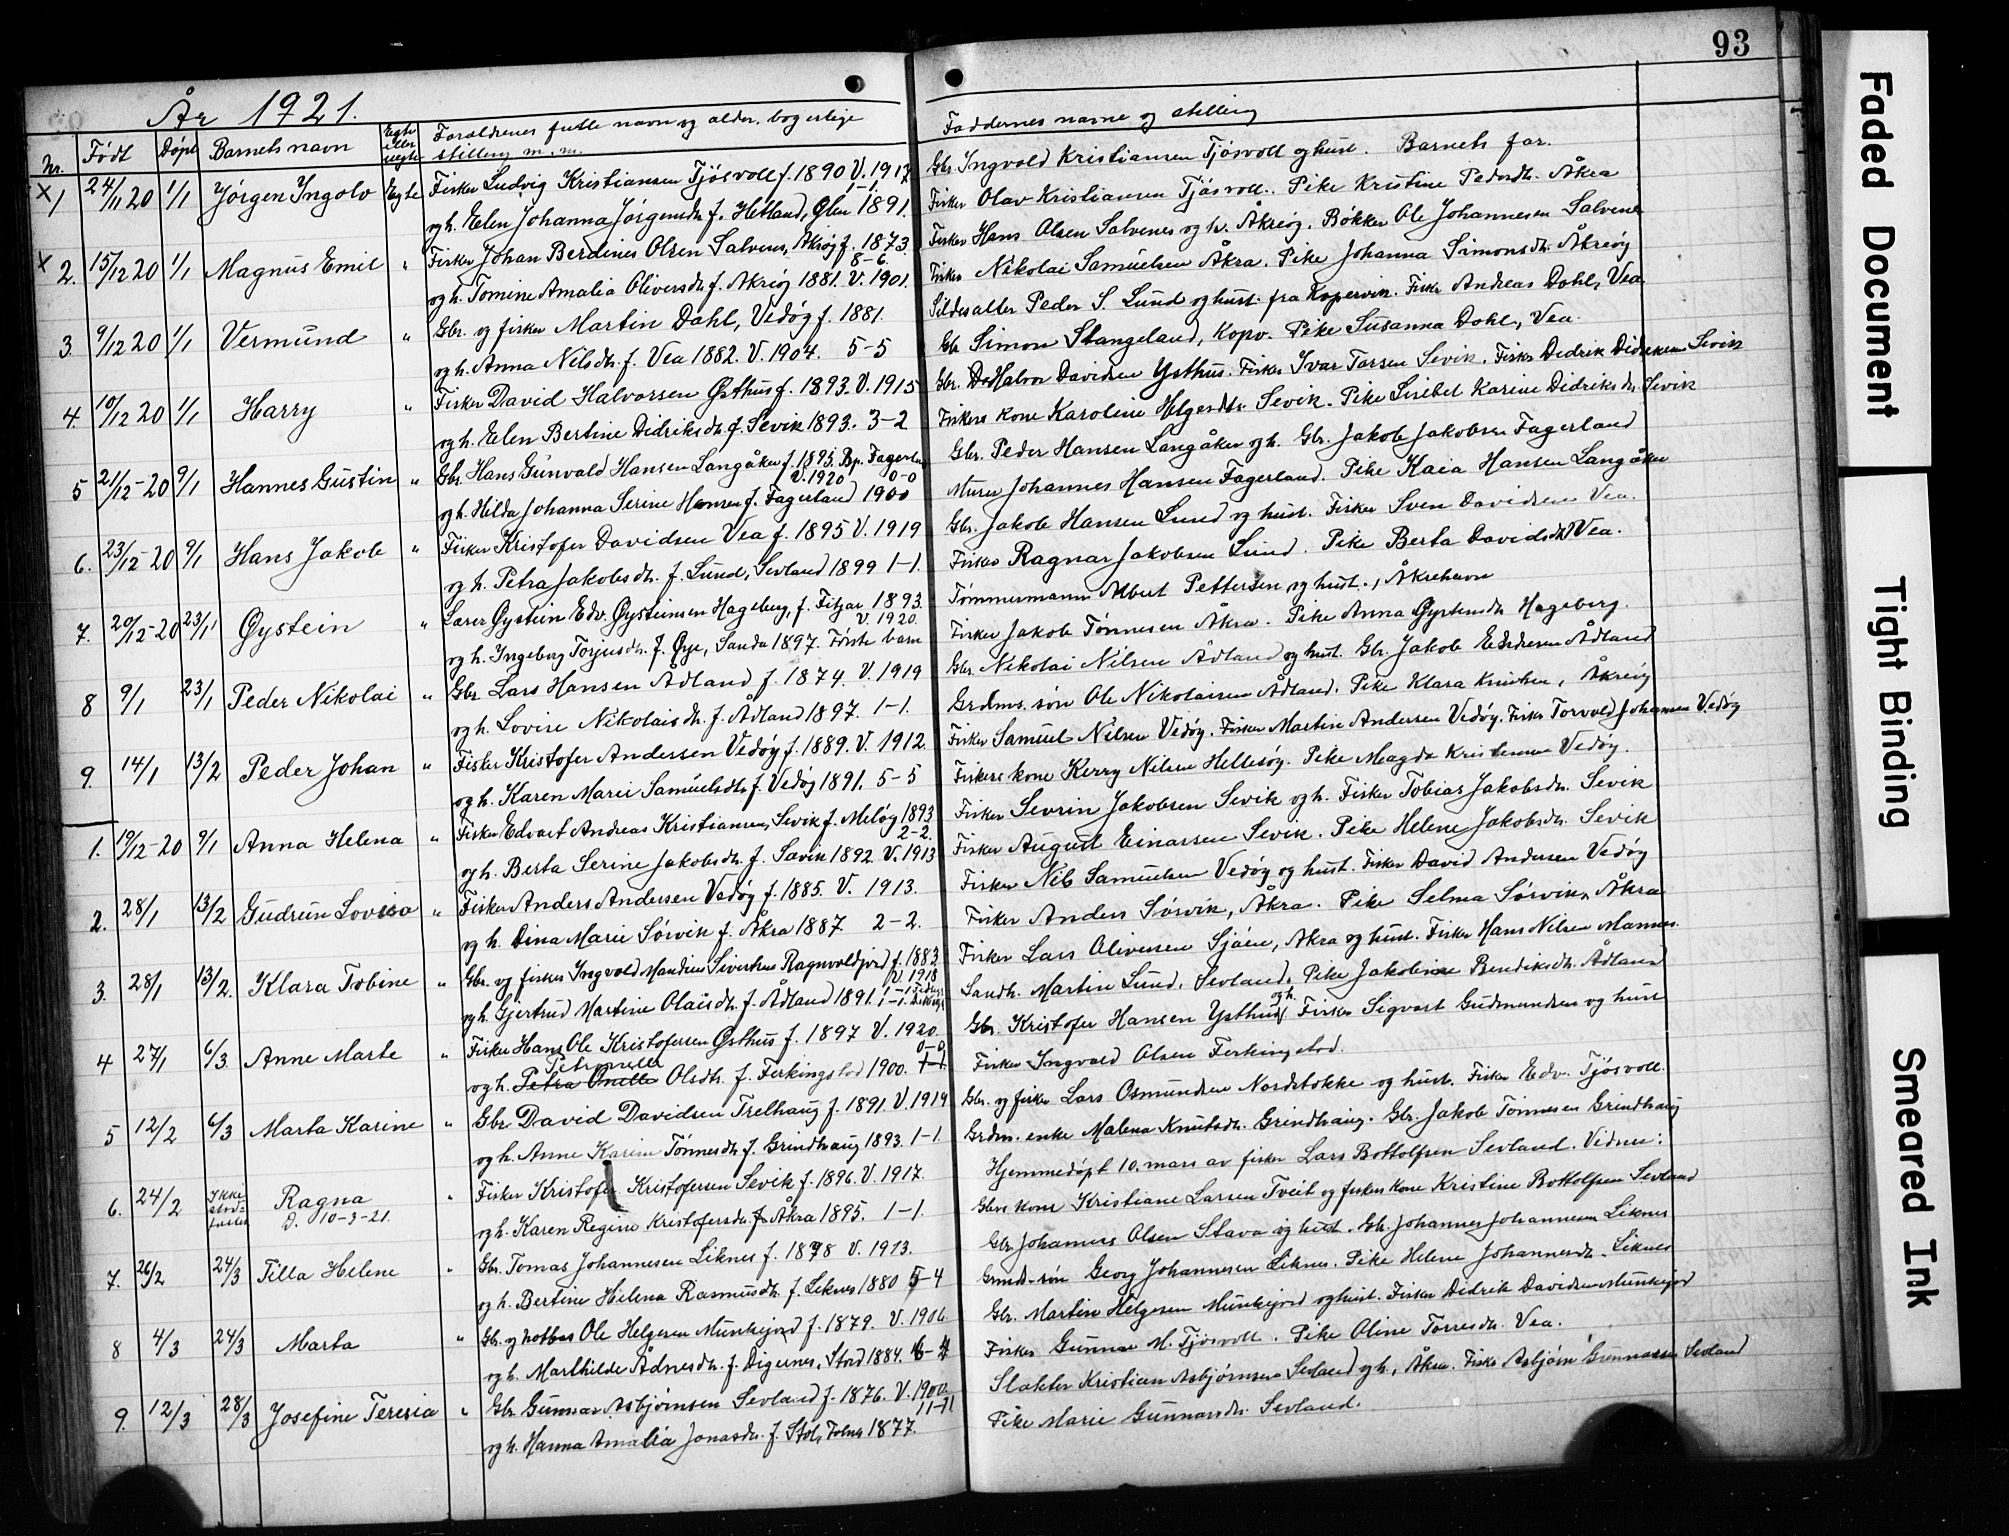 93
År 1921.
Nr. Født Døpt Barnets navn Egte eller uegte Forældrenes fulle navn og alder, borgerlige stilling m.m. Faddernes navne og stilling
1 24/11 20 1/1 Jörgen Ingolv Egte Fisker Ludvig Kristiansen Tjösvoll f. 1890 V. 1917 Gbr. Ingvald Kristiansen Tjösvoll og hust. Barnets far.
1-1.
og h. Elen Johanna Jörgensdr. f. Hetland, 1891. Fisker Olav Kristiansen Tjösvoll. Pike Kristine Pedersdr. Åkra
2. 15/12 20 1/1 Magnus Emil " Fisker Johan Berdines Olsen Salvenes, Åkreøg f. 1873. Fisker Hans Olsen Salvenes og h. Åkreøg. Bökker Ole Johannesen Salvenes
8-6.
og h. Tomine Amalia Oliversdr. f. Åkreøg 1881. V. 1901. Fisker Nikolai Samuelsen Åkra. Pike Johanna Simonsdr. Åkreøg
3. 9/12 20 1/1 Vermund " Gbr. og fisker Martin Dahl, Vedøg f. 1881. Sildesalter Peder S. Lund og hust. fra Kopervik. Fisker Andreas Dahl, Vea
og h. Anna Nilsdr. f. Vea 1882. V. 1904. 5-5 Gbr. Simon Stangeland, Kopv. Pike Susanna Dahl, Vea.
4. 10/12 20 1/1 Harry " Fisker David Halvorsen Østhus f. 1893. V. 1915 Gbr. Halvor Davidsen Ysthus. Fisker Ivar Tarsen Sevik. Fisker Dedrik Didriksen Sevik
og h. Elen Bertine Didriksdr. f. Sevik 1893. 3-2 Fiskers kone Karoline Helgesdtr. Sevik. Pike Lisebet Karine Didriksdr. Sevik
5 21/12-20 9/1 Hannes Gustin " Gbr. Hans Gunvald Hansen Langåker f. 1895. Bp. Fagerland Gbr. Peder Hansen Langåker og h. Gbr. Jakob Jakobsen Fagerland
V. 1920 0-0
og h. Hilda Johanna Serine Hansen f. Fagerland 1900 Murer Johannes Hansen Fagerland. Pike Kaia Hansen Langåker
6. 23/12-20 9/1 Hans Jakob " Fisker Kristofer Davidsen Vea f. 1895 V. 1919 Gbr. Jakob Hansen Lund og hust. Fisker Sven Davidsen Vea.
og h. Petra Jakobsdr. f. Lund, Sevland 1899 1-1. Fisker Ragnar Jakobsen Lund. Pike Berta Davidsdr. Vea.
7. 20/12-20 23/1 Øystein " Lærer Øystein Edv. Øysteinsen Hageberg, f. Fitjar 1893. Tømmermann Albert Pettersen og hust., Åkrehavn
V. 1920.
og h. Ingeborg Torjusdr. f. Øye, Sauda 1897. Første barn Fisker Jakob Tönnesen Åkra. Pike Anna Øysteinsdr. Hageberg.
8 9/1 23/1 Peder Nikolai " Gbr. Lars Hansen Ådland f. 1874. V. 1919 Gbr. Nikolai Nilsen Ådland og hust. Gbr. Jakob Endresen Ådland
og h. Lovise Nikolaisdr. f. Ådland 1897. 1-1. Grdms. søn Ole Nikolaisen Ådland. Pike Klara Knutsen, Åkreøg
9. 14/1 13/2 Peder Johan " Fisker Kristofer Andersen Vedøy f. 1889. V. 1912. Fisker Samuel Nilsen Vedøy. Fisker Martin Andersen Vedøy. Fisker Torvald Johansen Vedøy
og h. Karen Marie Samuelsdtr. f. Vedøy 1891. 5-5 Fiskers kone Kerry Nilsen Hellesøy. Pike Magda Kristensen Vedøy.
1. 19/12-20 9/1 Anna Helena " Fisker Edvart Andreas Kristiansen, Sevik f. Meløy 1893 Fisker Sevrin Jakobsen Sevik og h. Fisker Tobias Jakobsdr. Sevik
2-2.
og h. Berta Serine Jakobsdr. f. Sævik 1892. V. 1913 Fisker August Einarssen Sevik. Pike Helene Jakobsdr. Sevik
2. 28/1 13/2 Gudrun Lovisa " Fisker Anders Andersen Vedøy f. 1885. V. 1913. Fisker Nils Samuelsen Vedøy og hust. Fisker David Andersen Vedøy
og h. Dina Marie Sörvik f. Åkra 1887 2-2. Fisker Anders Sörvik, Åkra. Pike Selma Sörvik, Åkra
3. 28/1 13/2. Klara Tobine " Gbr. og fisker Ingvald Mandius Sivertsen Ragnvaldjord f. 1883. Fisker Lars Oliversen Sjöen, Åkra og hust. Fisker Hans Nilsen Mannes.
V. 1918
og h. Gjertrud Martine Olaisdr. f. Ådland 1891. 1-1. Sandh. Martin Lund, Sevland. Pike Jakobine Bendiksdr. Ådland
4 27/1 6/3 Anne Marte " Fisker Hans Ole Kristofersen Østhus f. 1897 V. 1920. Gbr. Kristofer Hansen Ysthus og h. Fisker Sigvart Gudmundsen og hust
Petronelle 0-0
og h. Petra Onilla Olsdtr. f. Ferkingstad 1900. 1-1. Fisker Ingvald Olsen Ferkingstad.
5 12/2 6/3 Marta Karine " Gbr. David Davidsen Trelhaug f. 1891. V. 1914 Gbr. og fisker Lars Osmundsen Nordstokke og hust. Fisker Edv. Tjösvoll.
og h. Anne Karine Tönnesdr. f. Grindhaug 1893. 1-1. Grdm. enke Malena Knutsdr. Grindhaug. Gbr. Jakob Tönnesen Grindhaug
6. 24/2 Ikke Ragna " Fisker Kristofer Kristofersen Sevik f. 1896. V. 1917. Hjemmedöpt 10. mars av fisker Lars Bottolfsen Sevland. Vidner:
D. 10-3-21. og h. Karen Regine Kristofersdr. f. Åkra 1895. 1-1. Gbrs kone Kristiane Larsen Tveit og fiskers kone Kristine Bottolfsen Sevland
7. 26/2 24/3 Tilla Helene " Gbr. Tomas Johannesen Liknes f. 1878 V. 1913. Gbr. Johannes Olsen Stava og hust. Gbr. Johannes Johannesen Liknes
og h. Bertine Helena Rasmusdr. f. Liknes 1880 5-4 Grmds. søn Georg Johannesen Liknes. Pike Helene Johannesdr. Liknes
8 4/3 24/3 Marta " Gbr. og notbas Ole Helgesen Munkejord f. 1879. V. 1906. Gbr. Martin Helgesen Munkejord og hust. Fisker Didrik Davidsen Munkejord
og h. Marthilde Ådnesdr. f. Digernes, Stord 1884. 6-4 Fisker Gunnar M. Tjösvoll. Pike Oline Torresdr. Vea.
9. 12/3 28/3 Josefine Teresia " Gbr. Gunnar Asbjørnsen Sevland f. 1876. V. 1900. Slakter Kristian Asbjørnsen Sevland og h., Åkra. Fisker Asbjørn Gunnarsen Sevland
11-11
og h. Hanna Amalia Jonasdr. f. Stol, 1877. Pike Marie Gunnarsdr. Sevland.
Faded Document
Tight Binding
Smeared Ink